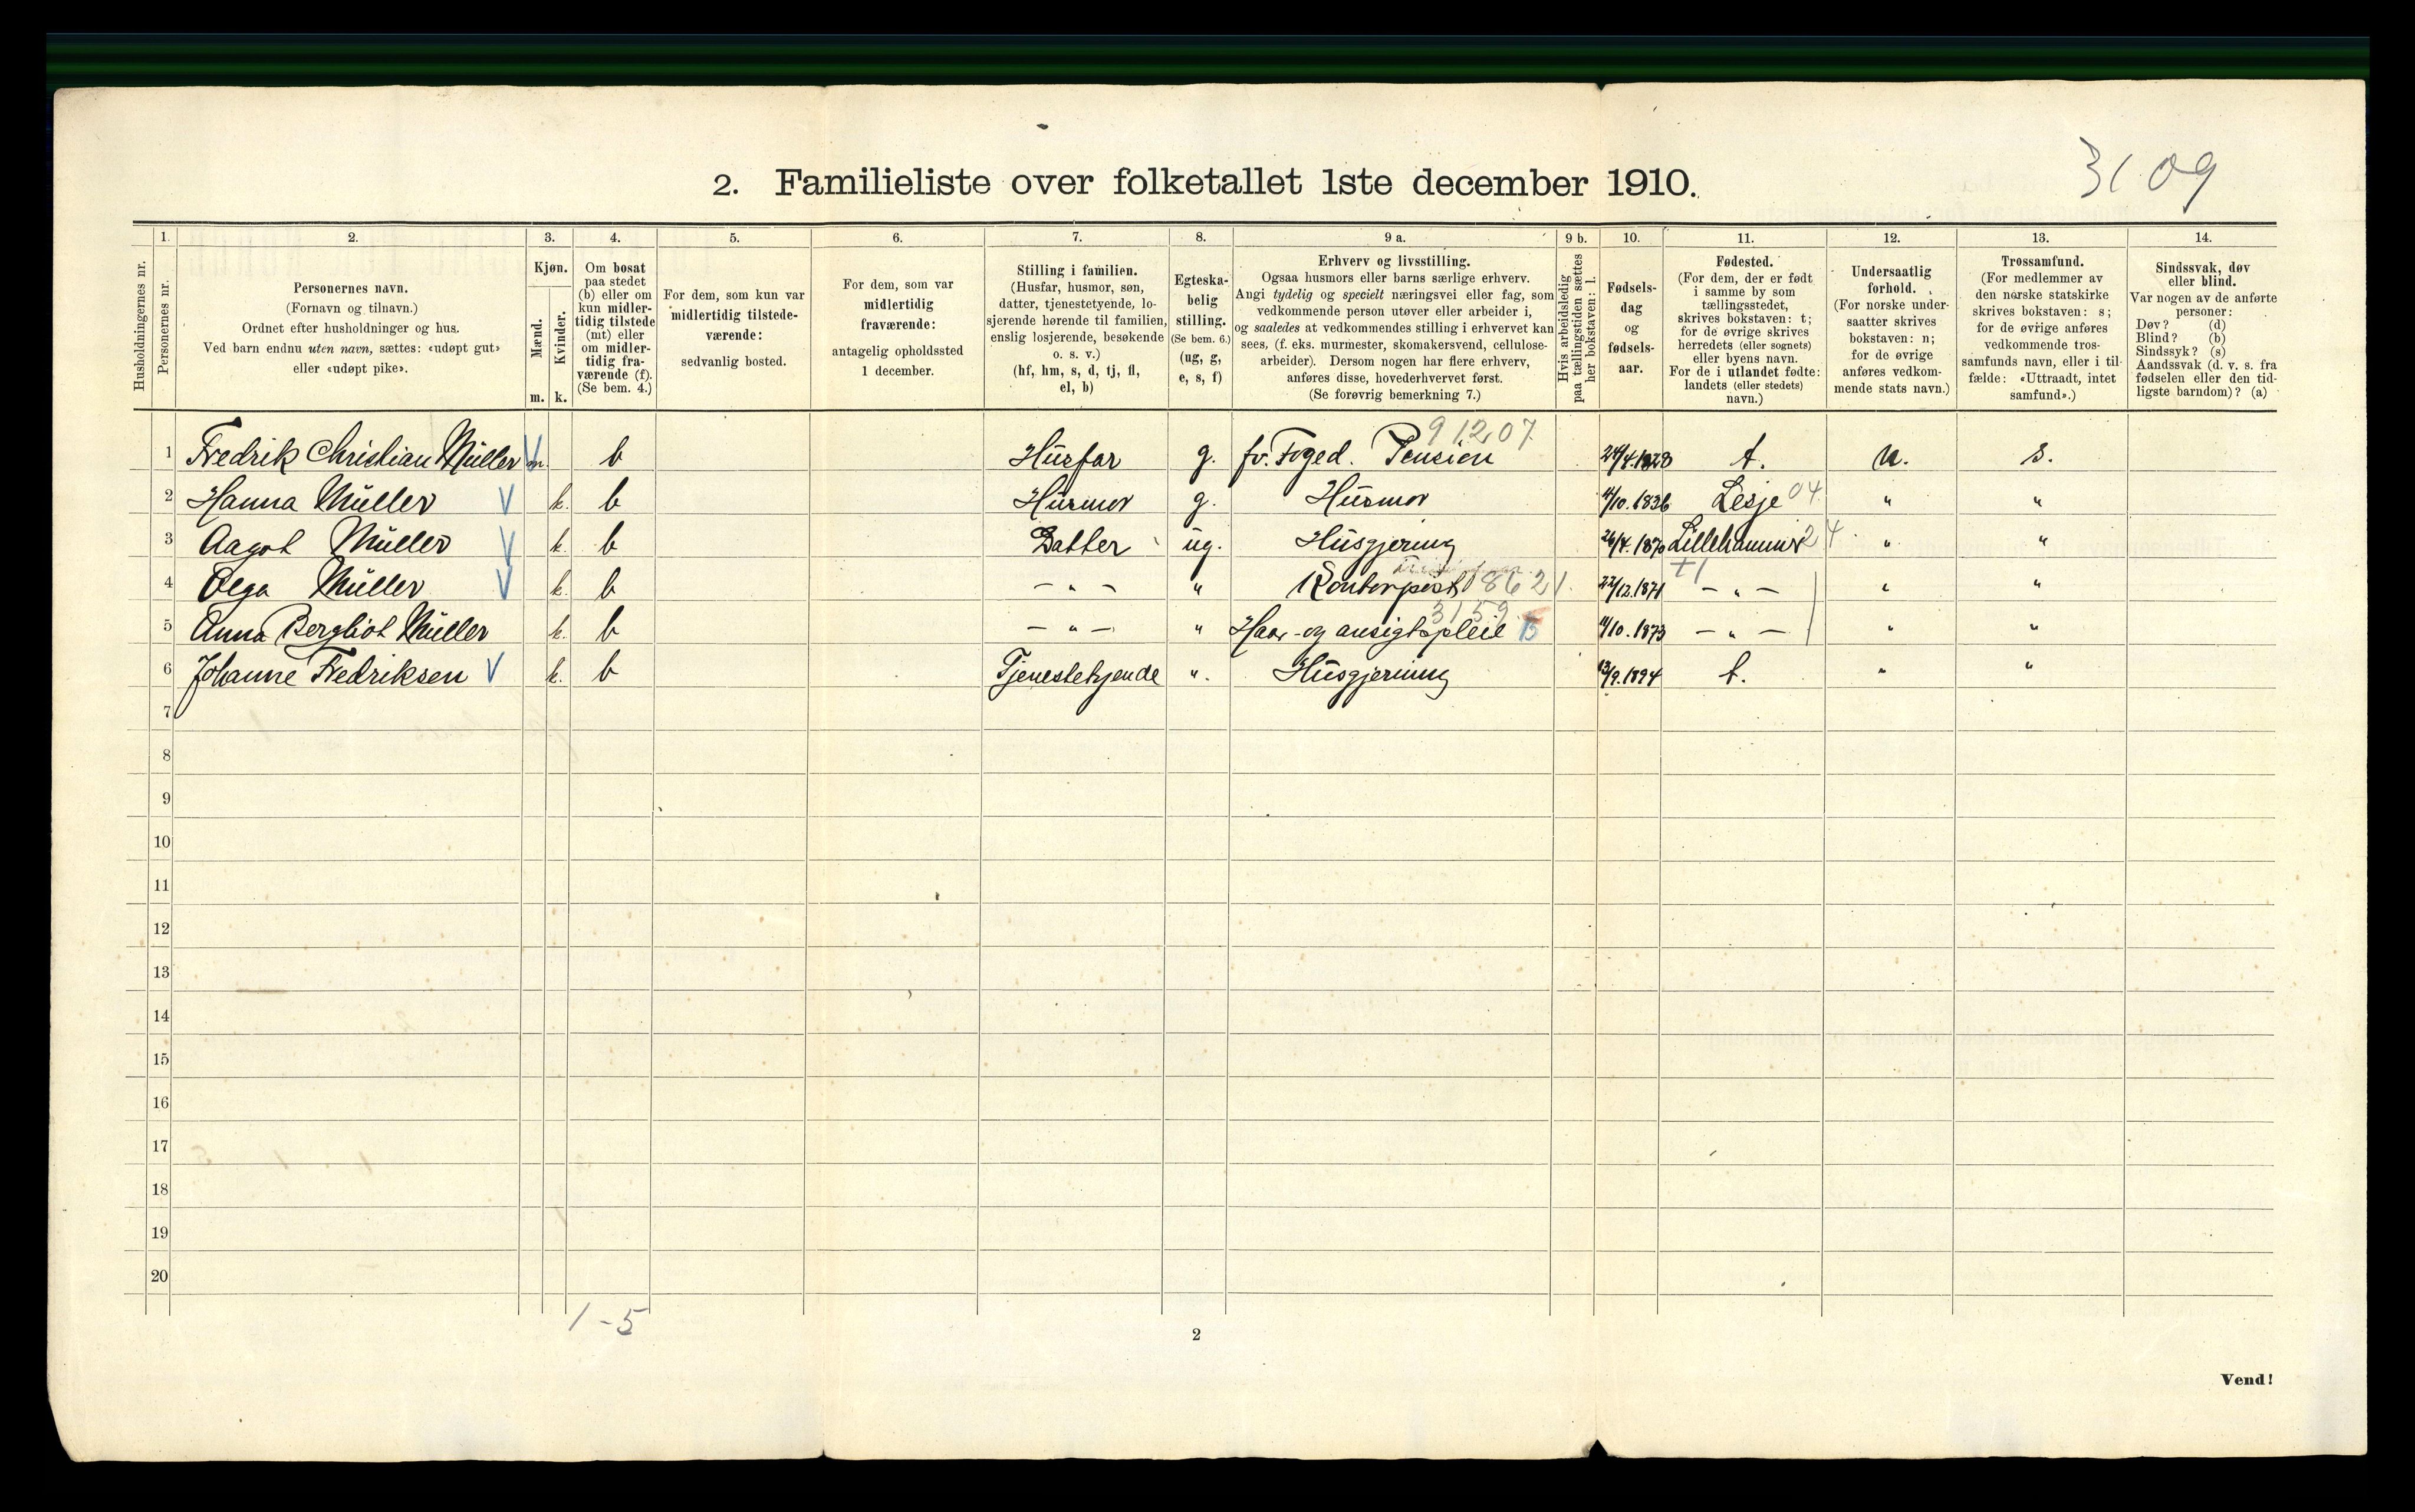 3109
2. Familieliste over folketallet 1ste december 1910.
1. 2. 3. 4. 5. 6. 7. 8. 9 a. 9 b. 10. 11. 12. 13. 14.
Husholdningernes nr.
Personernes nr.
Personernes navn.
(Fornavn og tilnavn.)
Ordnet efter husholdninger og hus.
Ved barn endnu uten navn, sættes: «udøpt gut»
eller «udøpt pike».
Kjøn.
Mænd.
Kvinder.
m. k.
Om bosat
paa stedet
(b) eller om
kun midler-
tidig tilstede
(mt) eller
om midler-
tidig fra-
værende (f).
(Se bem. 4.)
For dem, som kun var
midlertidig tilstede-
værende:
sedvanlig bosted.
For dem, som var
midlertidig
fraværende:
antagelig opholdssted
1 december.
Stilling i familien.
(Husfar, husmor, søn,
datter, tjenestetyende, lo-
sjerende hørende til familien,
enslig losjerende, besøkende
o. s. v.)
(hf, hm, s, d, tj, fl,
el, b)
Egteska-
belig
stilling.
(Se bem. 6.)
(ug, g,
e, s, f)
Erhverv og livsstilling.
Ogsaa husmors eller barns særlige erhverv.
Angi tydelig og specielt næringsvei eller fag, som
vedkommende person utøver eller arbeider i,
og saaledes at vedkommendes stilling i erhvervet kan
sees, (f. eks. murmester, skomakersvend, cellulose-
arbeider). Dersom nogen har flere erhverv,
anføres disse, hovederhvervet først.
(Se forøvrig bemerkning 7.)
Hvis arbeidsledig
paa tællingstiden sættes
her bokstaven: l.
Fødsels-
dag
og
fødsels-
aar.
Fødested.
(For dem, der er født
i samme by som
tællingsstedet,
skrives bokstaven: t;
for de øvrige skrives
herredets (eller sognets)
eller byens navn.
For de i utlandet fødte:
landets (eller stedets)
navn.)
Undersaatlig
forhold.
(For norske under-
saatter skrives
bokstaven: n;
for de øvrige
anføres vedkom-
mende stats navn.)
Trossamfund.
(For medlemmer av
den norske statskirke
skrives bokstaven: s;
for de øvrige anføres
vedkommende tros-
samfunds navn, eller i til-
fælde: «Uttraadt, intet
samfund».)
Sindssvak, døv
eller blind.
Var nogen av de anførte
personer:
Døv? (d)
Blind? (b)
Sindssyk? (s)
Aandssvak (d. v. s. fra
fødselen eller den tid-
ligste barndom)? (a)
91207
1 Fredrik Christian Müller V m. b Husfar g. fv. Foged. Pension 24/4.1828 t. n. s.
2 Hanna Müller V k. b Husmor g. Husmor 4/10.1836 Lesje 04 " "
3 Aagot Müller V k. b Datter ug. Husgjerning 26/4.1870 Lillehammer 24 " "
4 Olga Müller V k. b - " - " Kontorpost 8621 22/12.1871 - " - " "
3159
5 Anna Bergliot Müller k. b - " - " Haar- og ansigtspleie 11/10.1873 - " - " "
6 Johanne Fredriksen V k. b Tjenestetjende ". Husgjerning 13/9.1894 t. " "
7
8
9
10
11
12
13
14
15
16
17
18
19
20
1-5
2
Vend!